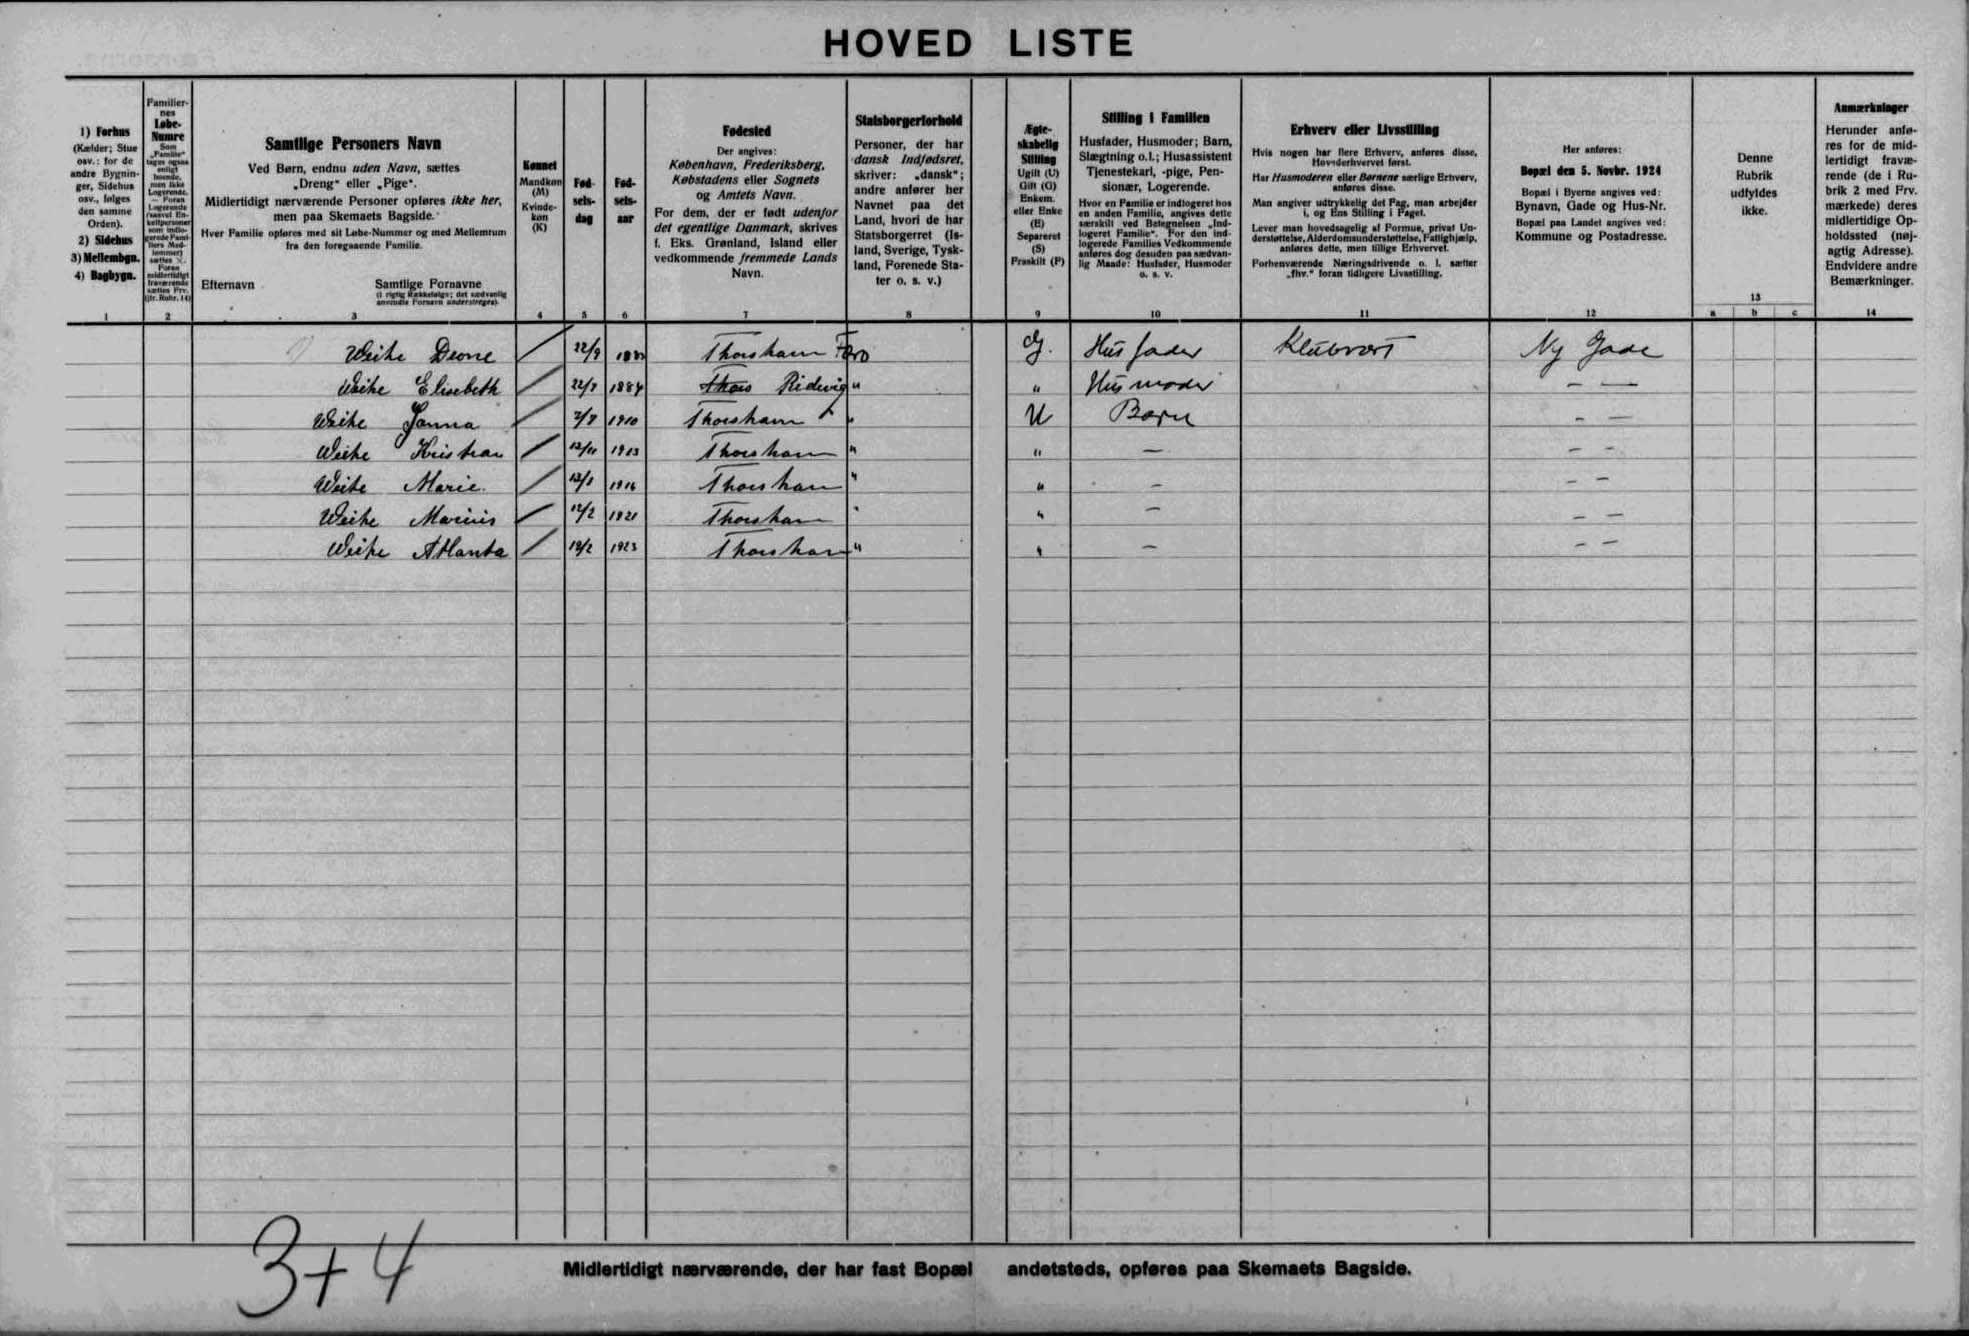 HOVED LISTE
1) Forhus
(Kælder; Stue
osv.: for de
andre Bygnin-
ger, Sidehus
osv., følges
den samme
Orden).
2) Sidehus
3) Mellembgn.
4) Bagbygn.
1
Familier-
nes
Løbe-
Numre
Som
„Familie"
tages ogsaa
enligt
boende,
men ikke
Logerende.
— Foran
Logerende
(saavel En-
keltpersoner
som indlo-
gerede Fami-
liers Med-
lemmer)
sættes ×.
Foran
midlertidigt
fraværende
sættes Frv.
(jfr. Rubr. 14)
2
Samtlige Personers Navn
Ved Børn, endnu uden Navn, sættes
„Dreng" eller „Pige".
Midlertidigt nærværende Personer opføres ikke her,
men paa Skemaets Bagside.
Hver Familie opføres med sit Løbe-Nummer og med Mellemrum
fra den foregaaende Familie.
Efternavn
Samtlige Fornavne
(i rigtig Rækkefølge; det sædvanlig
anvendte Fornavn understreges).
3
Kønnet
Mandkøn
(M)
Kvinde-
køn
(K)
4
Fød-
sels-
dag
5
Fød-
sels-
aar
6
Fødested
Der angives:
København, Frederiksberg,
Købstadens eller Sognets
og Amtets Navn.
For dem, der er født udenfor
det egentlige Danmark, skrives
f. Eks. Grønland, Island eller
vedkommende fremmede Lands
Navn.
7
Statsborgerforhold
Personer, der har
dansk Indfødsret,
skriver: „dansk";
andre anfører her
Navnet paa det
Land, hvori de har
Statsborgerret (Is-
land, Sverige, Tysk-
land, Forenede Sta-
ter o. s. v.)
8
Ægte-
skabelig
Stilling
Ugift (U)
Gift (G)
Enkem.
eller Enke
(E)
Separeret
(S)
Fraskilt (F)
9
Stilling i Familien
Husfader, Husmoder; Barn,
Slægtning o.l.; Husassistent
Tjenestekarl, -pige, Pen-
sionær, Logerende.
Hvor en Familie er indlogeret hos
en anden Familie, angives dette
særskilt ved Betegnelsen „Ind-
logeret Familie". For den ind-
logerede Families Vedkommende
anføres dog desuden paa sædvan-
lig Maade: Husfader, Husmoder
o. s. v.
10
Erhverv eller Livsstilling
Hvis nogen har flere Erhverv, anføres disse,
Hovederhvervet først.
Har Husmoderen eller Børnene særlige Erhverv,
anføres disse.
Man angiver udtrykkelig det Fag, man arbejder
i, og Ens Stilling i Faget.
Lever man hovedsagelig af Formue, privat Un-
derstøttelse, Alderdomsunderstøttelse, Fattighjælp,
anføres dette, men tillige Erhvervet.
Forhenværende Næringsdrivende o. l. sætter
„fhv." foran tidligere Livsstilling.
11
Her anføres:
Bopæl den 5. Novbr. 1924
Bopæl i Byerne angives ved:
Bynavn, Gade og Hus-Nr.
Bopæl paa Landet angives ved:
Kommune og Postadresse.
12
Denne
Rubrik
udfyldes
ikke.
13
a b c
Anmærkninger
Herunder anfø-
res for de mid-
lertidigt fravæ-
rende (de i Ru-
brik 2 med Frv.
mærkede) deres
midlertidige Op-
holdssted (nøj-
agtig Adresse).
Endvidere andre
Bemærkninger.
14
Weihe 22/9 Thorshavn Færø G. Husfader Klubvært Ny Gade
Weihe Elisebeth 22/7 1884 Thors " " Husmoder — —
Weihe Sanna 2/7 1910 Thorshavn " U Barn — —
Weihe Kristian 13/11 1913 Thorshavn " " — — —
Weihe Marie 13/1 1916 Thorshavn " " — — —
Weihe Marius 12/2 1921 Thorshavn " " — — —
Weihe Atlanta 19/2 1923 Thorshavn " " — — —
3+4
Midlertidigt nærværende, der har fast Bopæl andetsteds, opføres paa Skemaets Bagside.